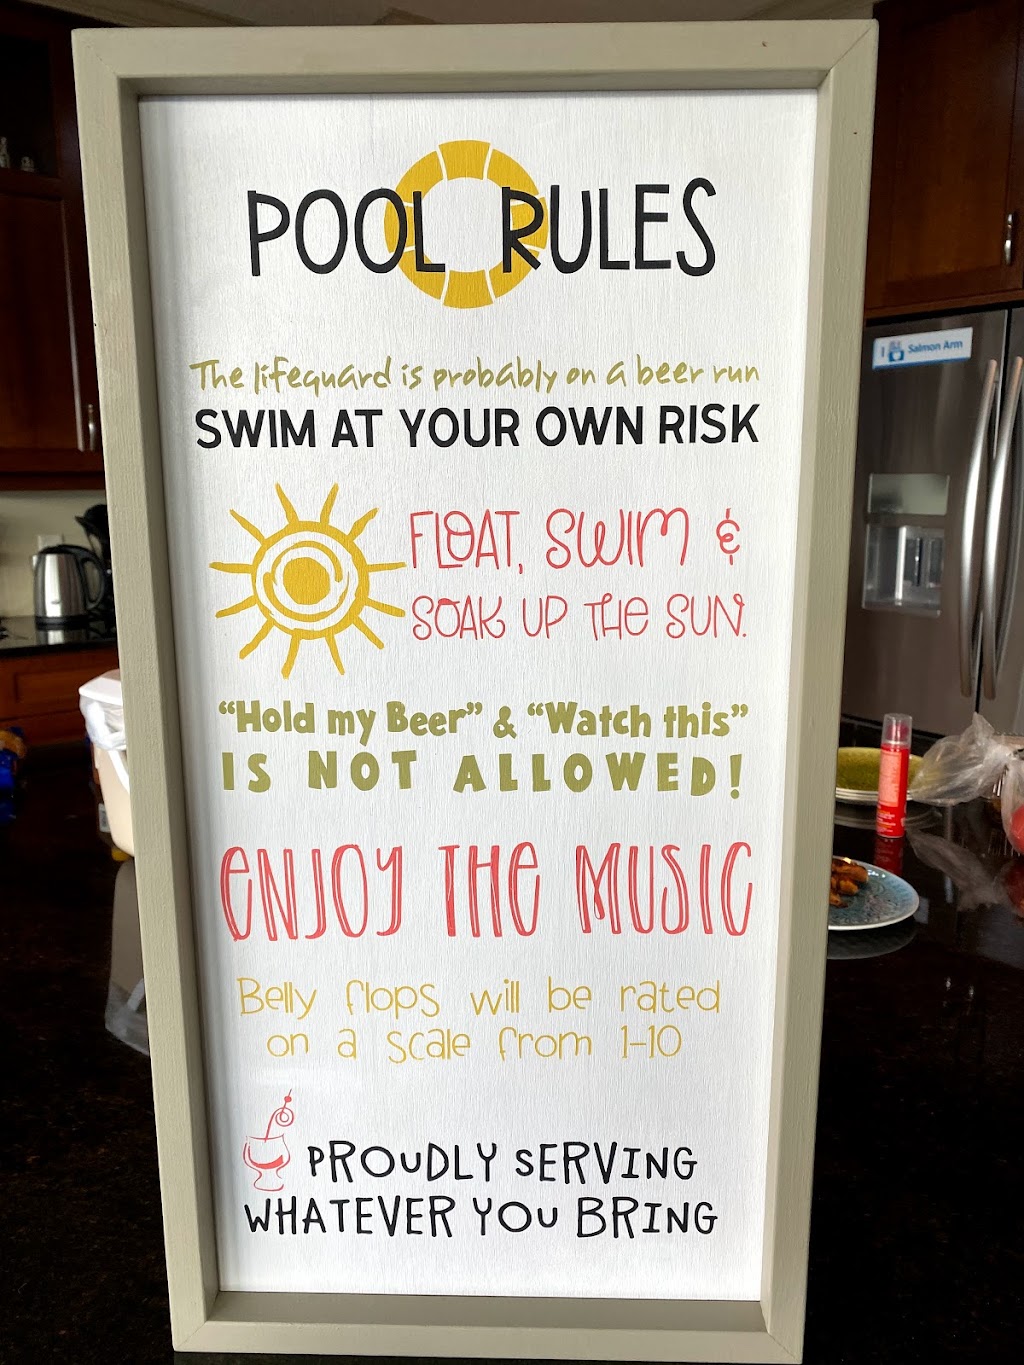 POOL RULES
The lifeguard is probably on a beer run
SWIM AT YOUR OWN RISK
FLOAT, SWIM &
SOAK UP THE SUN.
“Hold my Beer” & “Watch this”
IS NOT ALLOWED!
ENJOY THE MUSIC
Belly flops will be rated
on a scale from 1-10
PROUDLY SERVING
WHATEVER YOU BRING
I Salmon Arm